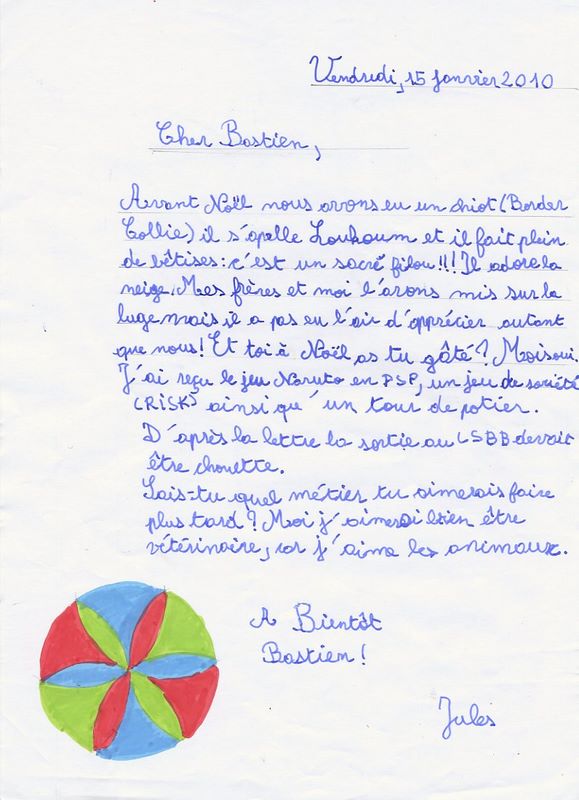 Vendredi, 15 janvier 2010
Cher Bastien,
Avant Noël nous avons eu un chiot (Border
Collie) il s'apelle Loukoum et il fait plein
de bêtises: c'est un sacré filou!!! Il adore la
neige. Mes frères et moi l'avons mis sur la
luge mais il a pas eu l'air d'apprécier autant
que nous! Et toi à Noël as tu gâté? Moi oui.
J'ai reçu le jeu Naruto en PSP, un jeu de société
(RISK) ainsi qu'un tour de potier.
D'après la lettre la sortie au LSBB devait
être chouette.
Sais-tu quel métier tu aimerais faire
plus tard? Moi j'aimerai bien être
vétérinaire, car j'aime les animaux.
A Bientôt
Bastien!
Jules